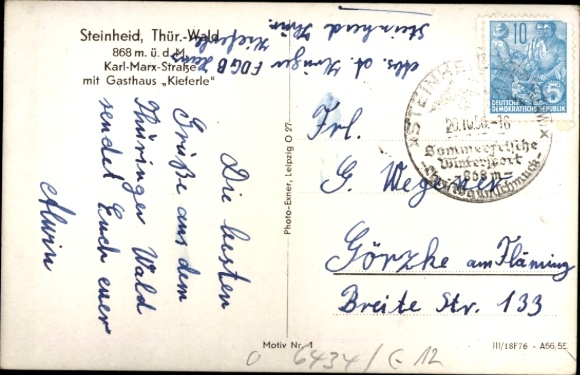 Steinheid, Thür.-Wald
868 m. ü. d. M.
Karl-Marx-Straße
mit Gasthaus „Kieferle"
Abs. A. Krüger FDGB
Kieferle
Steinheid Thür.
Die besten
Grüße aus dem
Thüringer Wald
sendet Euch euer
Alwin
Photo-Exner, Leipzig O 27
10
5
DEUTSCHE
DEMOKRATISCHE REPUBLIK
STEINHEID
20.10.56.-16
Sommerfrische
Wintersport
-868 m-
Christbaumschmuck
Frl.
G. Wegener
Görzke am Fläming
Breite Str. 133
Motiv Nr. 1
III/18F76 - A56.55
6434/C 12